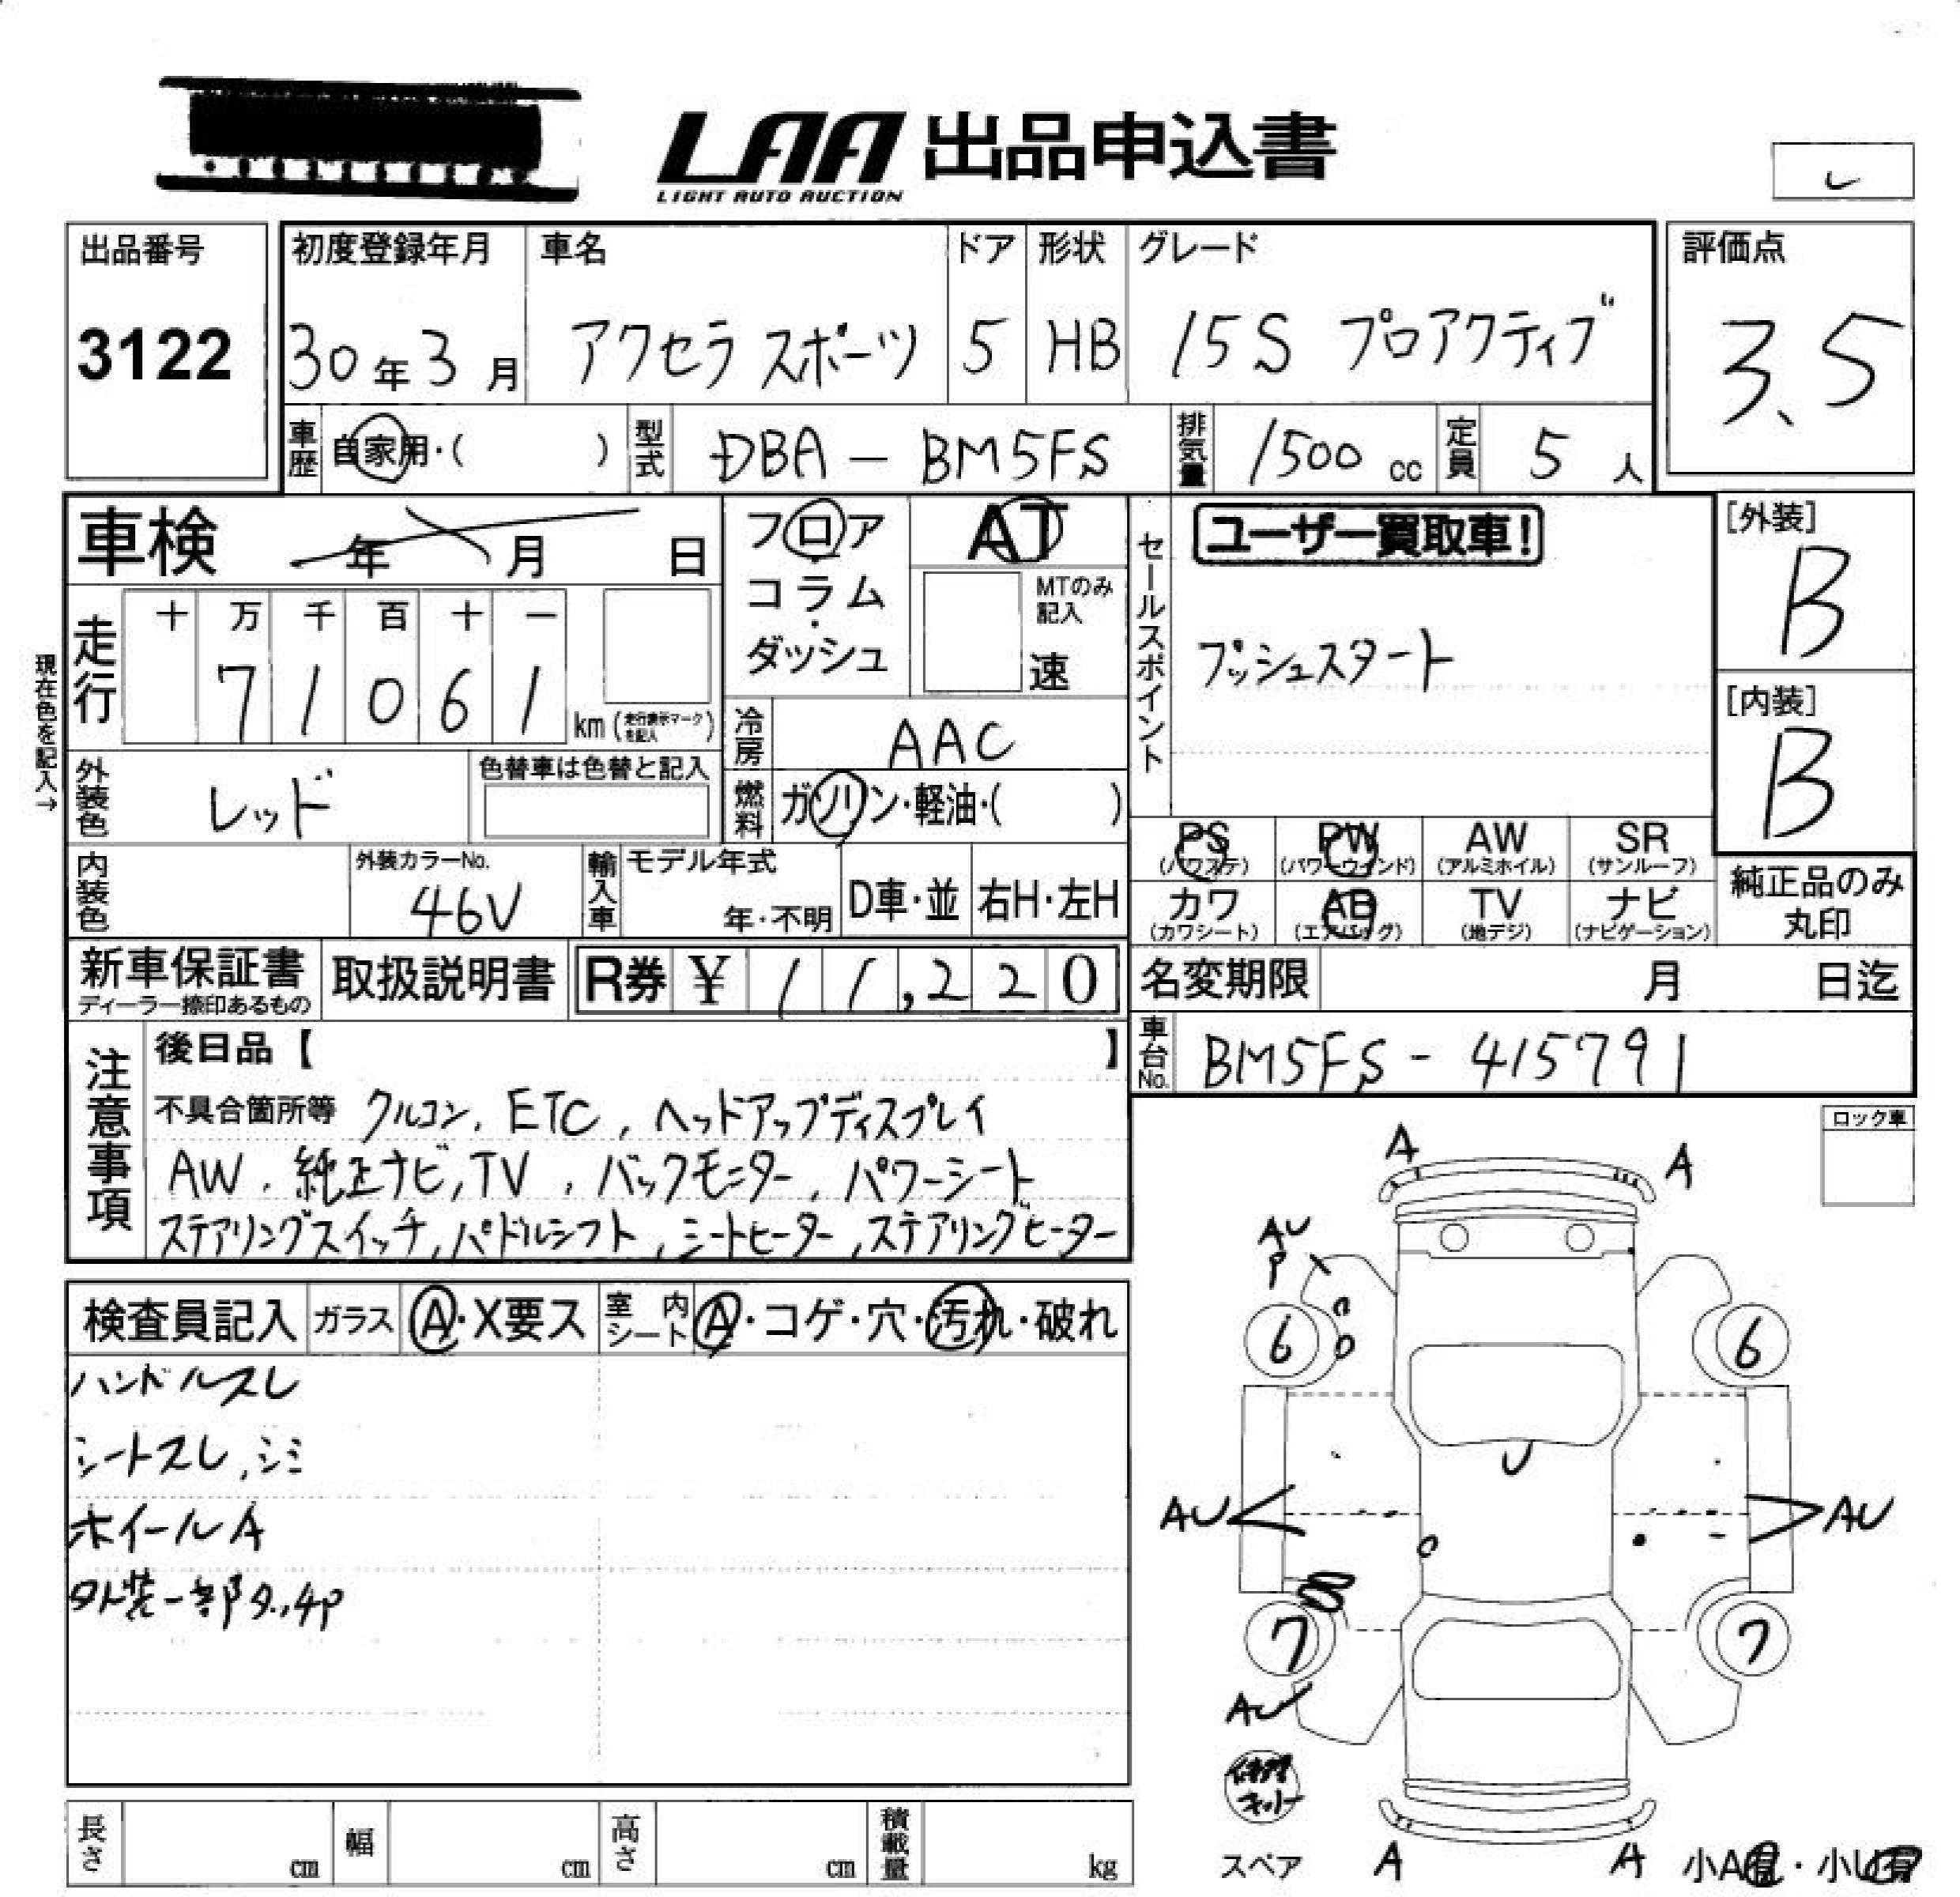 LAA 出品申込書
LIGHT AUTO AUCTION
出品番号
3122
初度登録年月
30年3月
車名
アクセラ スポーツ
ドア
5
形状
HB
グレード
15S プロアクティブ
評価点
3.5
車歴 自家用・( )
型式 DBA-BM5FS
排気量 1500 cc
定員 5 人
車検 年 月 日
フロア
コラム
ダッシュ
AT
MTのみ記入
速
セールスポイント
ユーザー買取車!
プッシュスタート
[外装]
B
[内装]
B
現在色を記入→
走行 十 万 千 百 十 一
71061 km (走行表示マークを記入)
冷房 AAC
外装色 レッド
色替車は色替と記入
燃料 ガソリン・軽油・( )
内装色
外装カラーNo.
46V
輸入車
モデル年式
年・不明
D車・並
右H・左H
PS (パワステ)
PW (パワーウインド)
AW (アルミホイル)
SR (サンルーフ)
カワ (カワシート)
AB (エアバッグ)
TV (地デジ)
ナビ (ナビゲーション)
純正品のみ丸印
新車保証書
ディーラー捺印あるもの
取扱説明書
R券 ¥ 11,220
名変期限 月 日迄
車台No. BM5FS-415791
注意事項
後日品【 】
不具合箇所等 クルコン, ETC, ヘッドアップディスプレイ
AW, 純正ナビ, TV, バックモニター, パワーシート
ステアリングスイッチ, パドルシフト, シートヒーター, ステアリングヒーター
ロック車
検査員記入
ガラス A・X要ス
室内シート A・コゲ・穴・汚れ・破れ
ハンドルスレ
シートスレ, シミ
ホイールA
外装一部タッチP
A
A
AU
P
6
6
U
AU
AU
7
7
AU
修理キット
スペア
A
A
小A有・小U有
長さ cm
幅 cm
高さ cm
積載量 kg